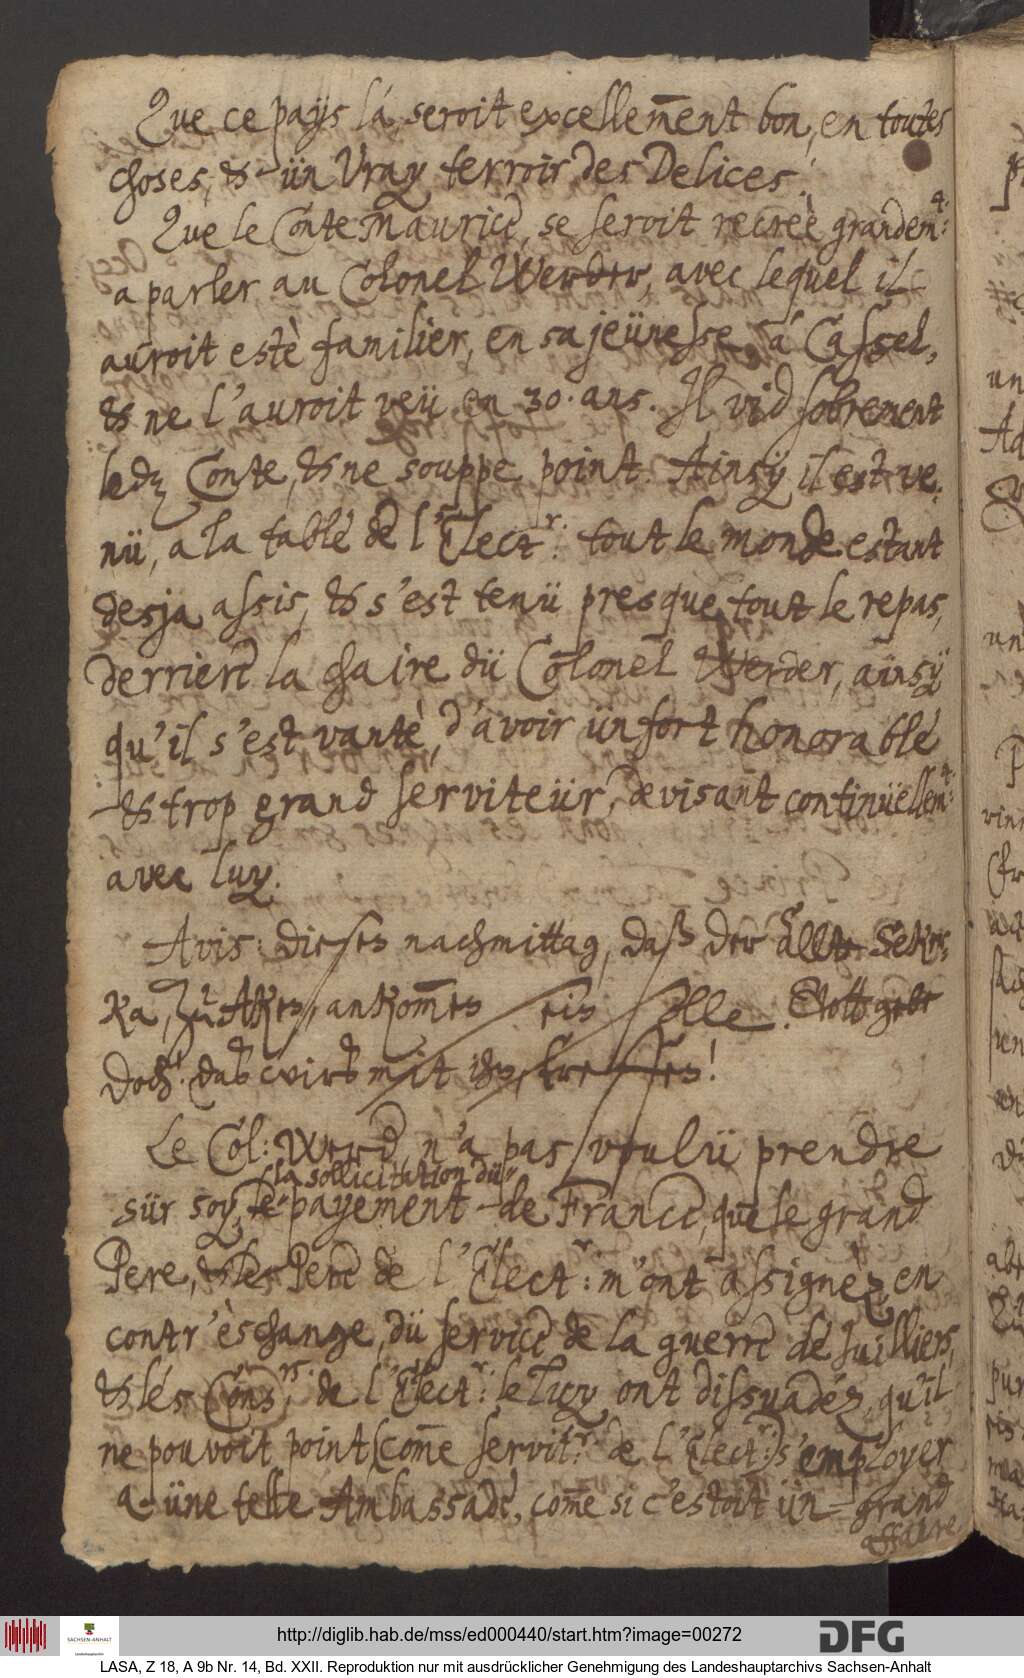 Que ce païs là, seroit excellem̄ent bon, en toutes
choses, & ün Vray terroir des Delices.
Que le Conte Maurice, se seroit recreè grandem:t
a parler au Colonel Werder, avec lequel il
auroit estè familier, en sa jeünesse, à Cassel,
& ne l'auroit veü en 30. ans. Il vid sobrement
ledz Conte, & ne souppe point. Ainsy il est ve=
nü, a la table de l'Elect:r tout le monde estant
desja assis, & s'est tenü presque tout le repas,
derriere la chaire dü Colonel Werder, ainsÿ
qu'il s'est vantè, d'avoir ün fort honorable
& trop grand serviteür, devisant continüellem:t
avec luy.
Avis: dieses nachmittag, daß der ältte
ka, zu Aken, ankommen sein solle. Gott gebe
doch! daß wirs mit ihm treffen!
Le Col: Werd, n'a pas voulü prendre
la sollicitation dü
sür soy, le payement de France, que le grand
Pere, & le Pere de l'Elect:r m'ont assignèz, en
contr'èschange, dü service de la guerre de Juilliers,
& lés Cons:rs de l'Elect:r le luy ont dissuadéz, qu'il
ne pouvoit point (com̄e servit:r de l'Elect:r) s'employer
a üne telle Ambassade, com̄e si c'estoit ün grand
affaire
http://diglib.hab.de/mss/ed000440/start.htm?image=00272
SACHSEN-ANHALT
Landeshauptarchiv
DFG
LASA, Z 18, A 9b Nr. 14, Bd. XXII. Reproduktion nur mit ausdrücklicher Genehmigung des Landeshauptarchivs Sachsen-Anhalt